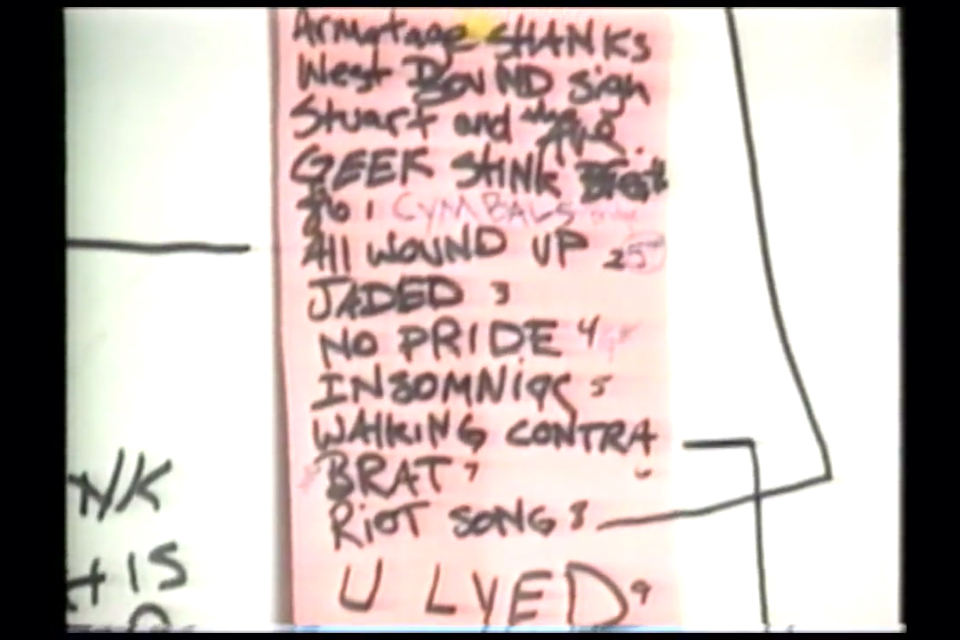 Armatage SHANKS
West BOUND Sign
Stuart and the AVE.
GEEK STINK Breath
1 CYMBALS only
All WOUND UP 2
JADED 3
NO PRIDE 4
INSOMNIAC 5
WALKING CONTRA
BRAT 7
RIOT SONG 8
U LYED 9
NK
H IS